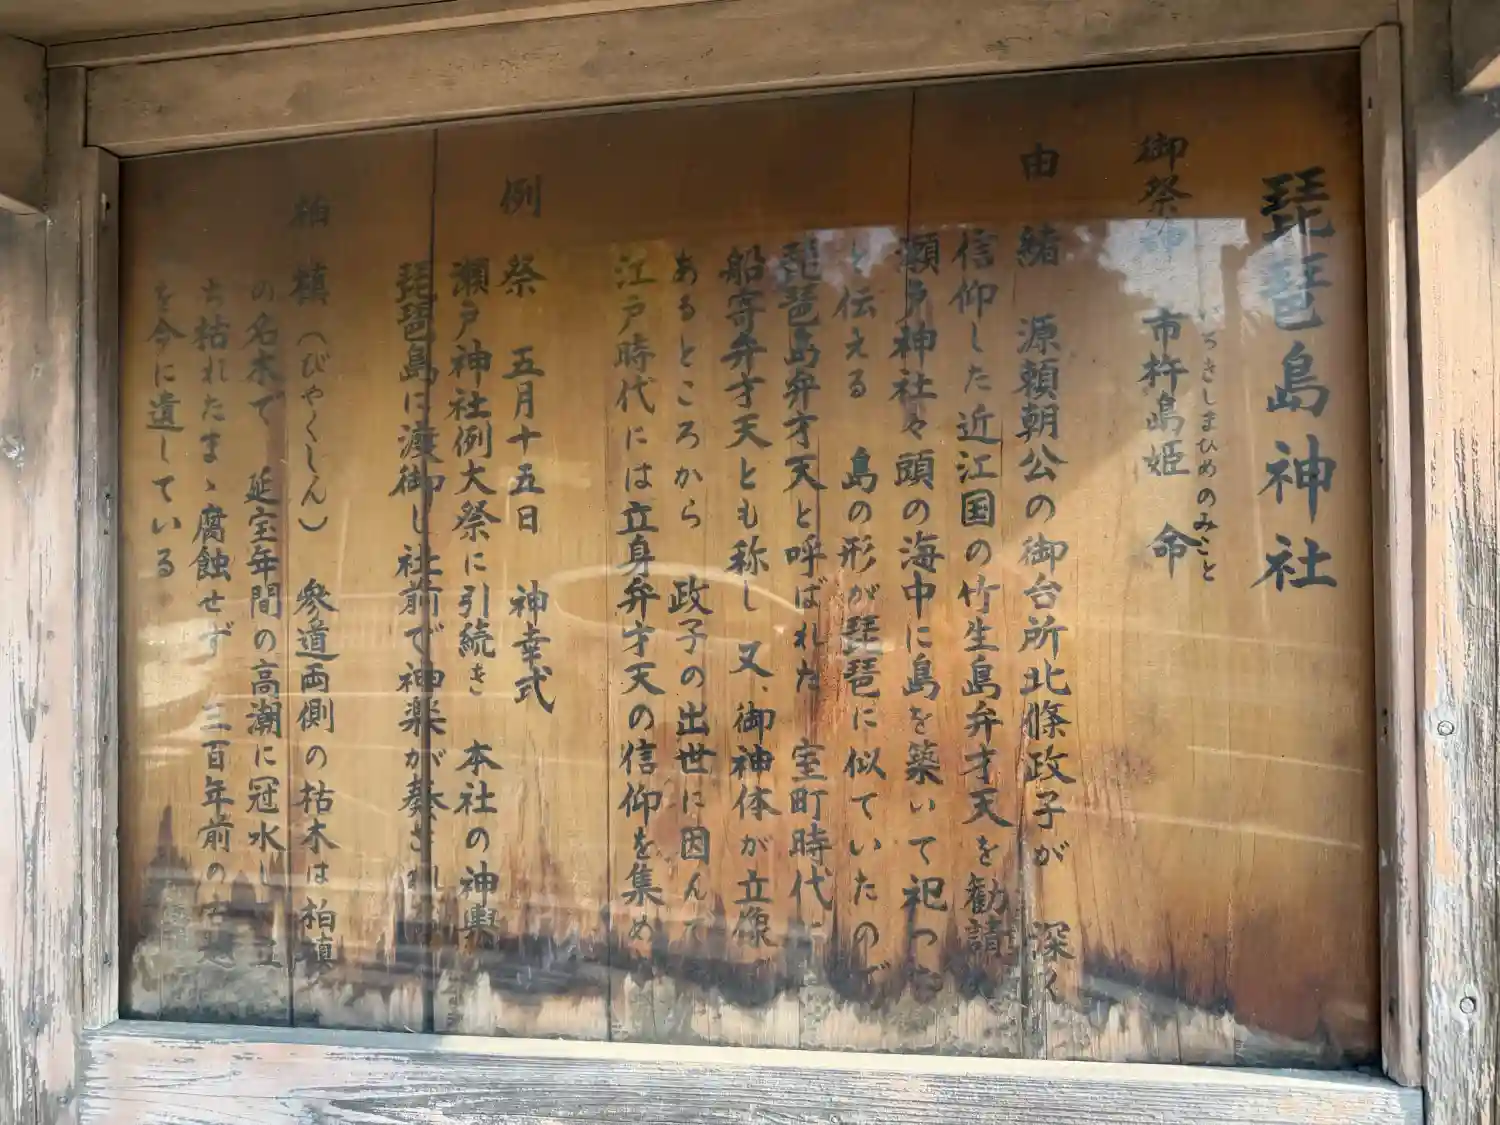 琵琶島神社
御祭神 市杵島姫 命
いちきしまひめのみこと
由緒 源頼朝公の御台所北條政子が 深く
信仰した近江国の竹生島弁才天を勧請し
瀬戸神社々頭の海中に島を築いて祀つた
と伝える 島の形が琵琶に似ていたので
琵琶島弁才天と呼ばれた 室町時代に
船寄弁才天とも称し 又、御神体が立像で
あるところから 政子の出世に因んで
江戸時代には立身弁才天の信仰を集め
例祭 五月十五日 神幸式
瀬戸神社例大祭に引続き 本社の神輿
琵琶島に渡御し社前で神楽が奏され
柏槙(びやくしん) 参道両側の枯木は柏槙
の名木で 延宝年間の高潮に冠水し 立
ち枯れたまゝ腐蝕せず 三百年前の
を今に遺している